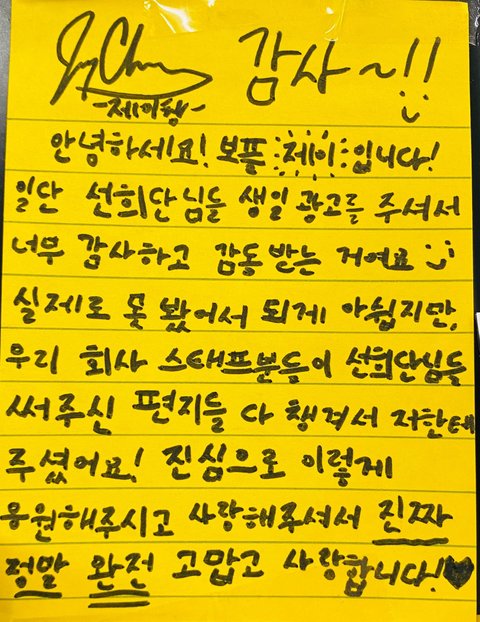 Jay Chang 감사~!!
-제이창-
안녕하세요! 보플 제이 입니다!
일단 선희단님들 생일 광고를 주셔서
너무 감사하고 감동 받는 거에요
실제로 못 봤어서 되게 아쉽지만,
우리 회사 스태프분들이 선희단님들
써주신 편지들 다 챙겨서 저한테
주셨어요! 진심으로 이렇게
응원해주시고 사랑해주셔서 진짜
정말 완전 고맙고 사랑합니다!♥